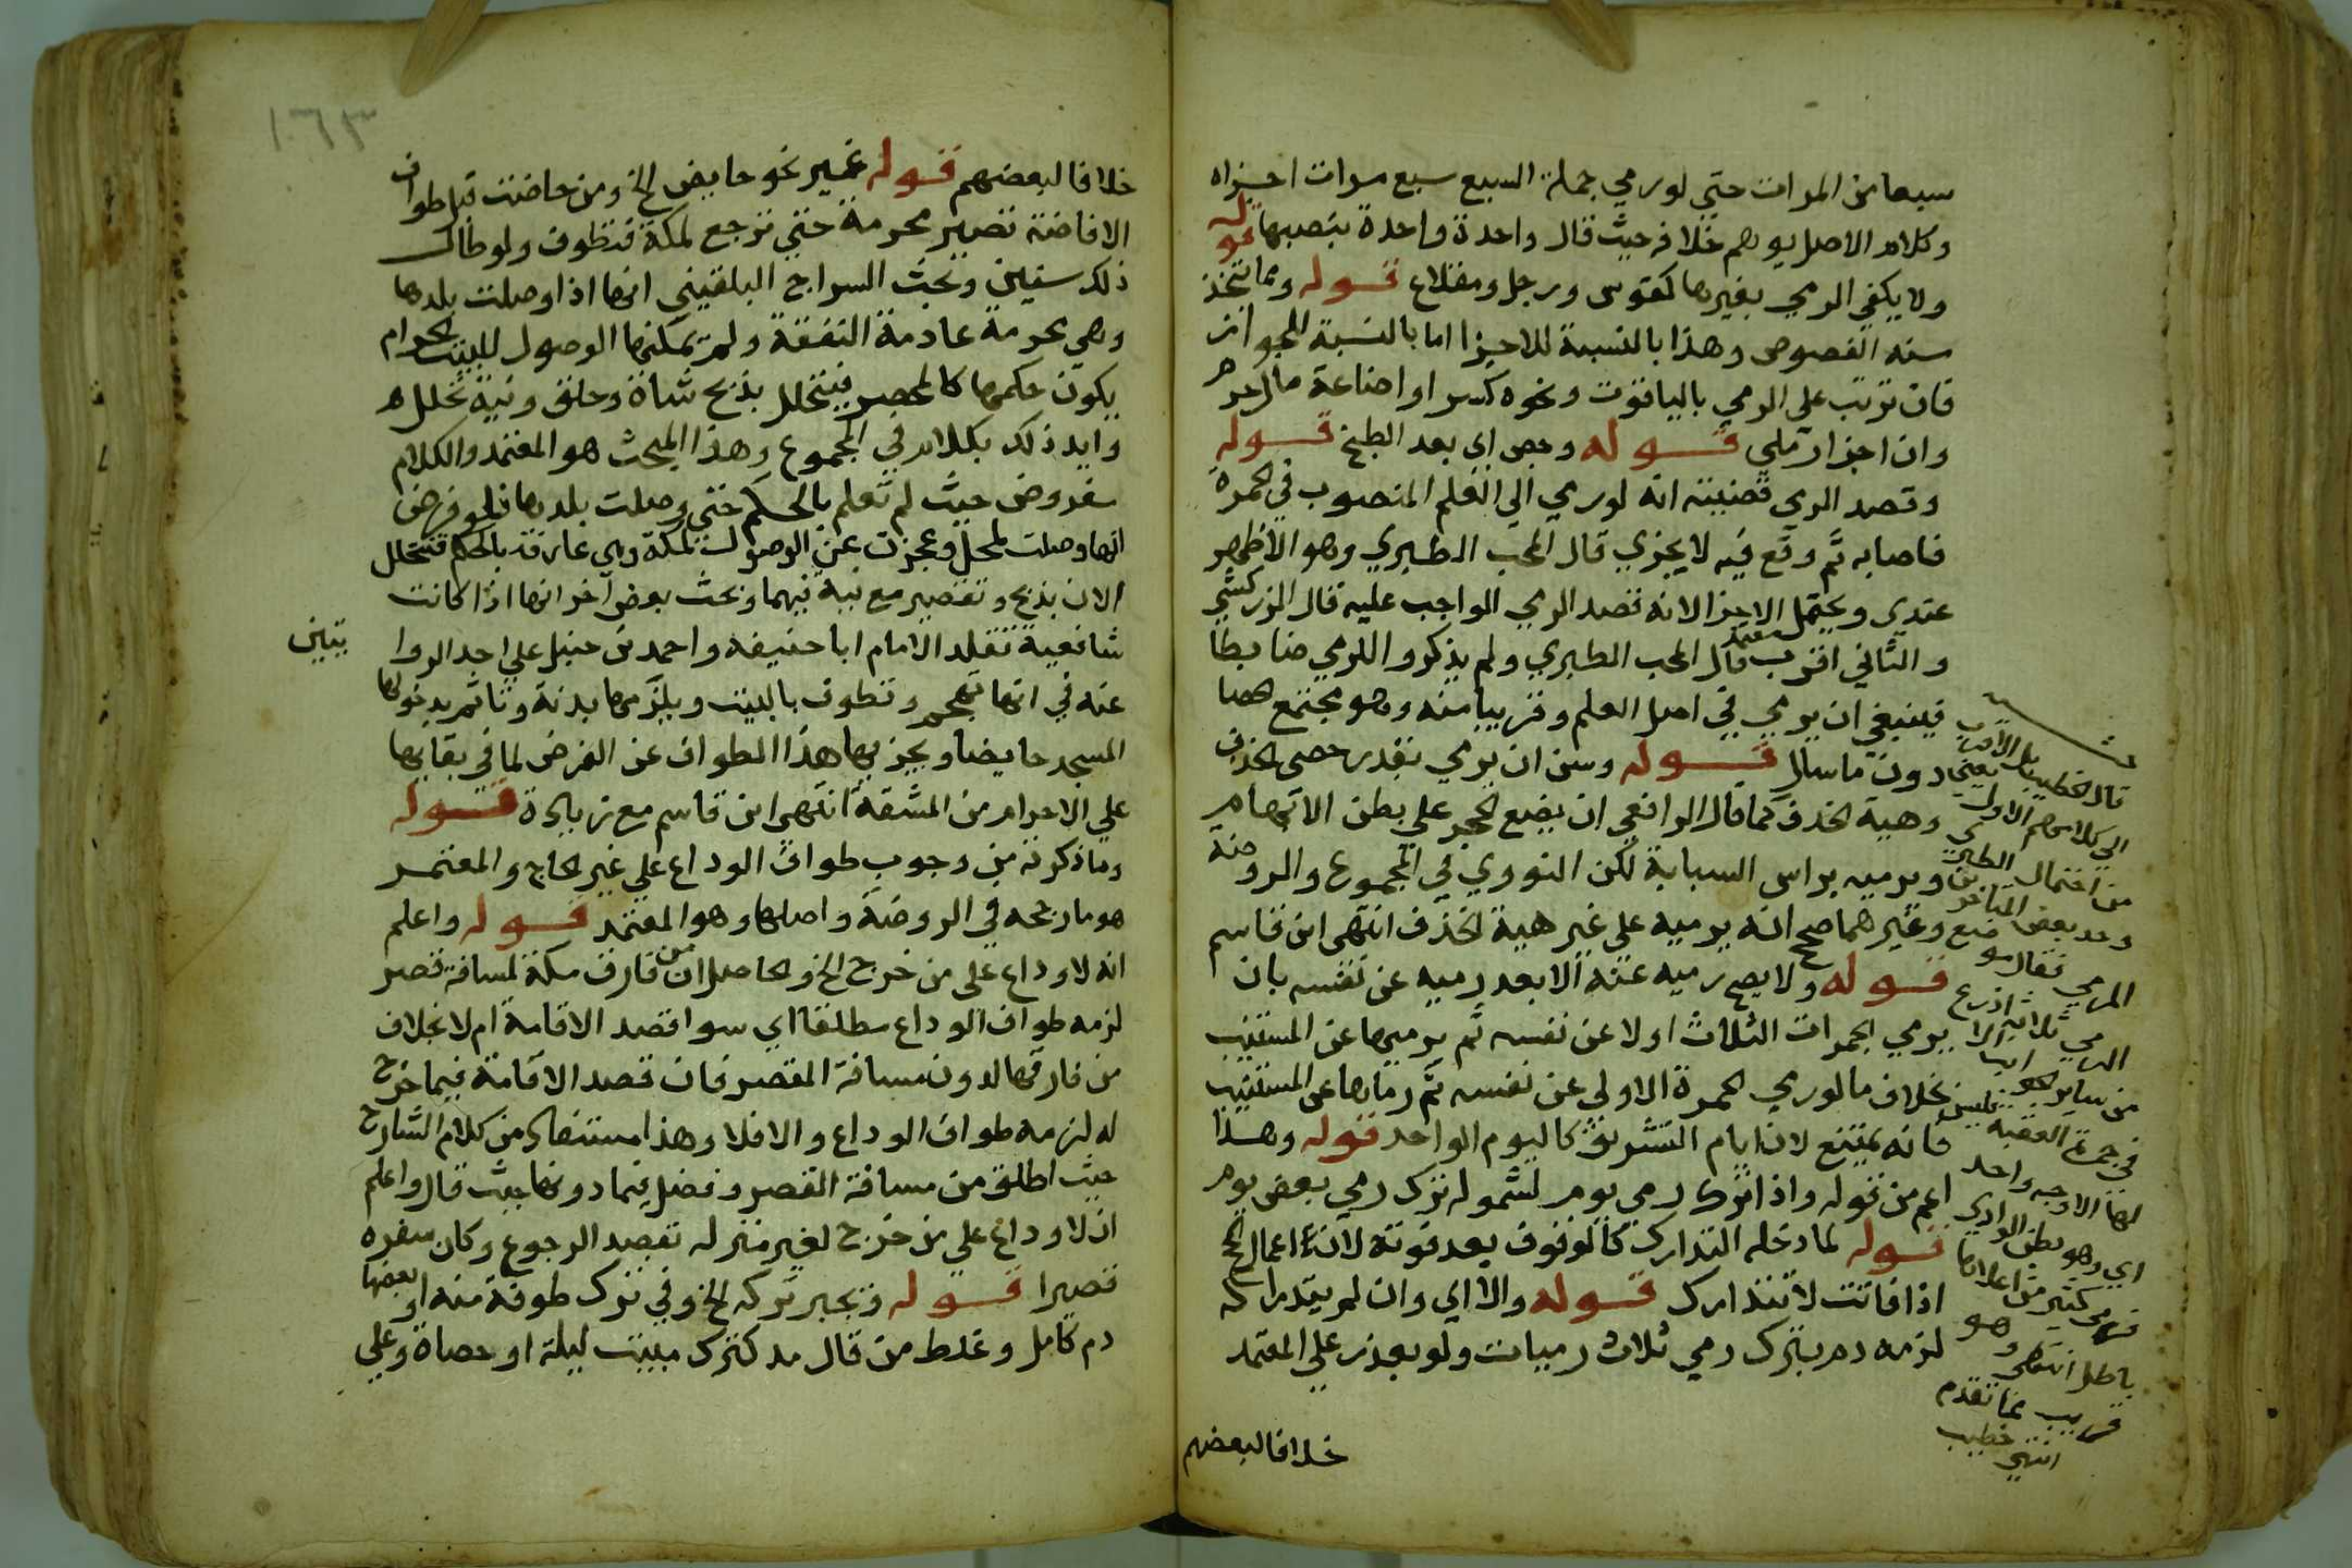 سبعا من المرات حتى لو رمي جملة السبع سبع مرات اجزاه
وكلام الاصل يوهم خلافه حيث قال واحدة واحدة بنصبها قوله
ولا يكفي الرمي بغيرها كقوس ورجل ومقلاع قوله ومما تتخذ
منه الفصوص وهذا بالنسبة للاجزا اما بالنسبة للجواز
فان ترتب علي الرمي بالياقوت ونحوه كسر او اضاعة مال حرم
وان اجزا رملي قوله وجص اي بعد الطبخ قوله
وقصد المرمي قضيته انه لو رمي الي العلم المنصوب في الجمرة
فاصابه ثم وقع فيه لا يجزي قال المحب الطبري وهو الاظهر
عندي ويحتمل الاجزا لانه قصد الرمي الواجب عليه قال الزركشي
والثاني اقرب معتمد قال المحب الطبري ولم يذكروا للرمي ضابطا
فينبغي ان يرمي في اصل العلم وقريبا منه وهو مجتمع الحصا
دون ما سال قوله وسن ان يرمي بقدر حصى الخذف
وهية الخذف كما قال الرافعي ان يضع الحجر علي بطن الابهام
ويرميه براس السبابة لكن النووي في المجموع والروضة
وغيرهما صحح انه يرميه على غير هية الخذف انتهى ابن قاسم
قوله ولا يصح رميه عنه الا بعد رميه عن نفسه بان
يرمي الجمرات الثلاث اولا عن نفسه ثم يرميها عن المستنيب
بخلاف ما لو رمي الجمرة الاولي عن نفسه ثم رماها عن المستنيب
فانه يمتنع لان ايام التشريق كاليوم الواحد قوله وهذا
اعم من قوله واذا ترك رمي يوم لشموله ترك رمي بعض يوم
قوله لما دخله التدارك كالوقوف بعد فوته لانه اعمال الحج
اذا فاتت لا تتدارك قوله والا اي وان لم يتداركه
لزمه دم بترك رمي ثلاث رميات ولو بعذر علي المعتمد
خلافا لبعضهم
قال الخطيب بل الاقرب
الي كلامهم الاول
من احتمال الطبري
وحد بعض المتاخرين
المرمي فقال هو
الرمي ثلاثة اذرع
من ساير الجوانب الا
في جمرة العقبة فليس
لها الا وجه واحد
اي وهو بطن الوادي
فرمي كثير من اعلاها
باطل انتهى وهو
قريب مما تقدم
انتهي خطيب
١٦٣
خلافا لبعضهم قوله غير نحو حايض الخ ومن حاضت قبل طواف
الافاضة تصير محرمة حتي ترجع لمكة فتطوف ولو طال
ذلك سنين وبحث السراج البلقيني انها اذا وصلت بلدها
وهي محرمة عادمة النفقة ولم يمكنها الوصول للبيت الحرام
يكون حكمها كالمحصر فيتحلل بذبح شاة وحلق ونية تحلل
وايد ذلك بكلام في المجموع وهذا المبحث هو المعتمد والكلام
مفروض حيث لم تعلم بالحكم حتي وصلت بلدها فلو فرض
انها وصلت لمحل وعجزت عن الوصول لمكة وهي عارفة بالحكم فتتحلل
الان بذبح وتقصير مع نية فيهما وبحث بعض اخر انها اذا كانت
شافعية تقلد الامام ابا حنيفة واحمد بن حنبل علي احد الروا
يتين
عنه في انها تهجم وتطوف بالبيت ويلزمها بدنة وتاثم بدخولها
المسجد حايضا ويجزيها هذا الطواف عن الفرض لما في بقايها
علي الاحرام من المشقة انتهى ابن قاسم مع زيادة قوله
وما ذكرته من وجوب طواف الوداع علي غير الحاج والمعتمر
هو ما رجحه في الروضة واصلها وهو المعتمد قوله واعلم
انه لا وداع علي من خرج الخ والحاصل ان من فارق مكة لمسافة قصر
لزمه طواف الوداع مطلقا اي سوا قصد الاقامة ام لا بخلاف
من فارقها لدون مسافة القصر فان قصد الاقامة فيما خرج
له لزمه طواف الوداع والا فلا وهذا مستفاد من كلام الشارح
حيث اطلق من مسافة القصر وفصل فيما دونها حيث قال واعلم
ان لا وداع علي من خرج لغير منزله بقصد الرجوع وكان سفره
قصيرا قوله ويجبر تركه الخ وفي ترك طوفة منه او بعضها
دم كامل وغلط من قال مد كترك مبيت ليلة او حصاة وعلي